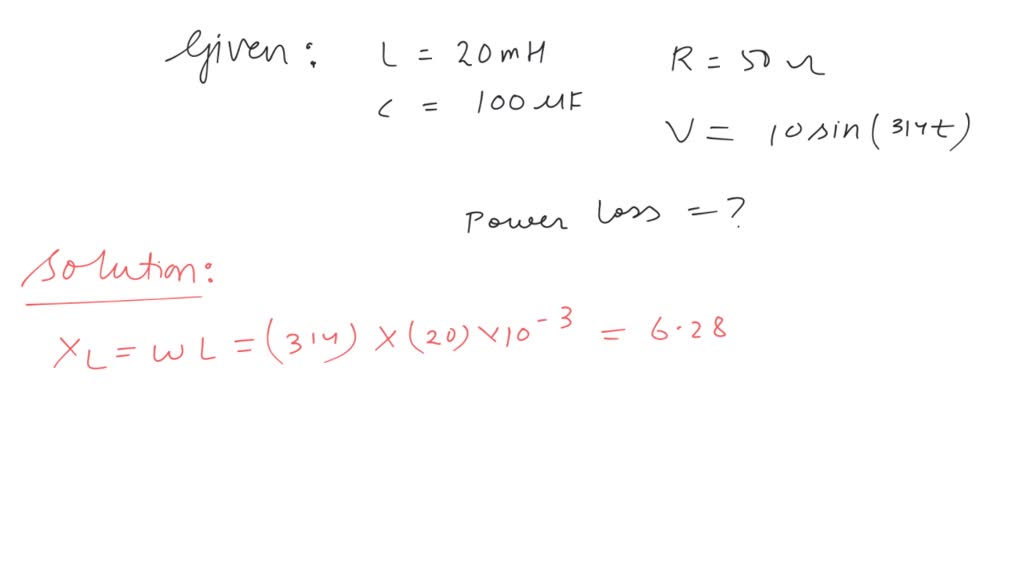 Given: L = 20mH R = 50Ω
C = 100 μF
V = 10 sin(314t)
Power Loss = ?
Solution:
X_L = ωL = (314) × (20) × 10^-3 = 6.28